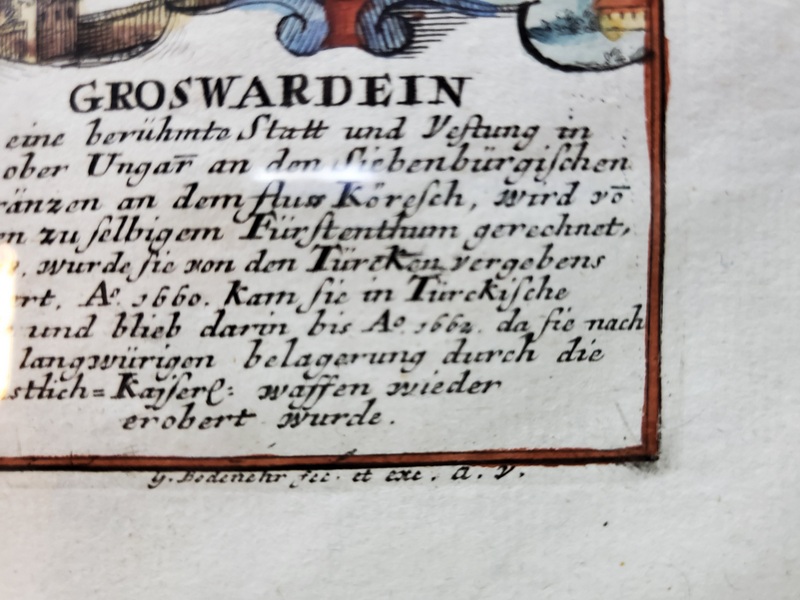 GROSWARDEIN
eine berühmte Statt und Vestung in
ober Ungar̅ an den Siebenbürgischen
ränzen an dem fluss Köresch, wird vo̅
en zu selbigem Fürstenthum gerechnet,
wurde sie von den Türcken vergebens
rt. Aº. 1660. kam sie in Türckische
und blieb darin bis Aº. 1662. da sie nach
langwürigen belagerung durch die
stlich=Kaÿserl: waffen wieder
erobert wurde.
G. Bodenehr fec. et exc. A. V.